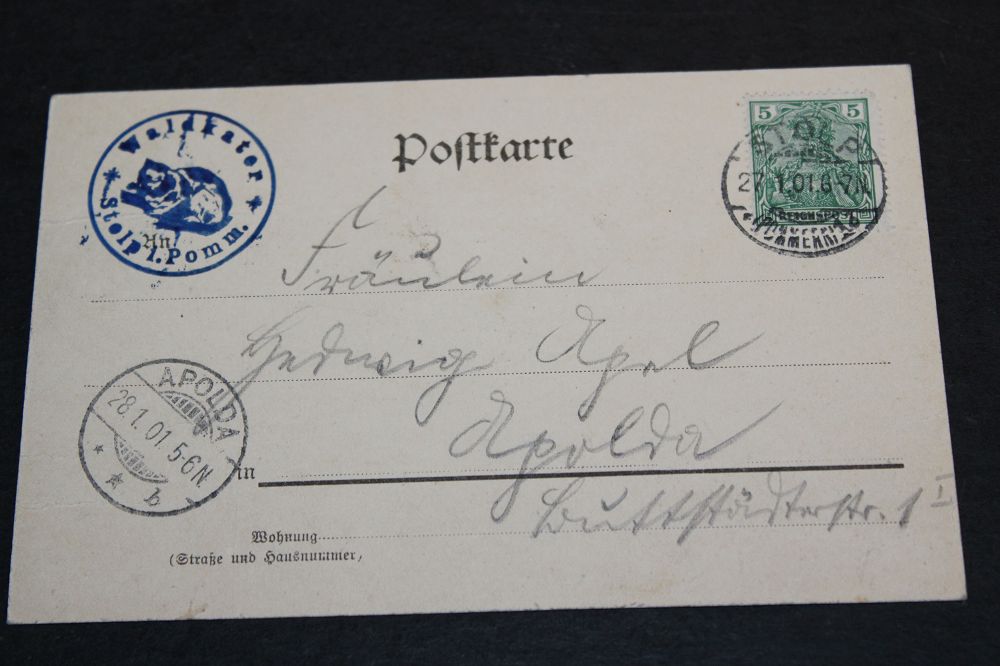 Waldkater
Stolp i. Pomm.
Postkarte
5 5
STOLP
27.1.01.6-7N.
REICHSPOST
An
Fräulein
Hedwig Apel
APOLDA
28.1.01 5-6N.
b
in Apolda
Buttstädterstr. 1 I
Wohnung
(Straße und Hausnummer)